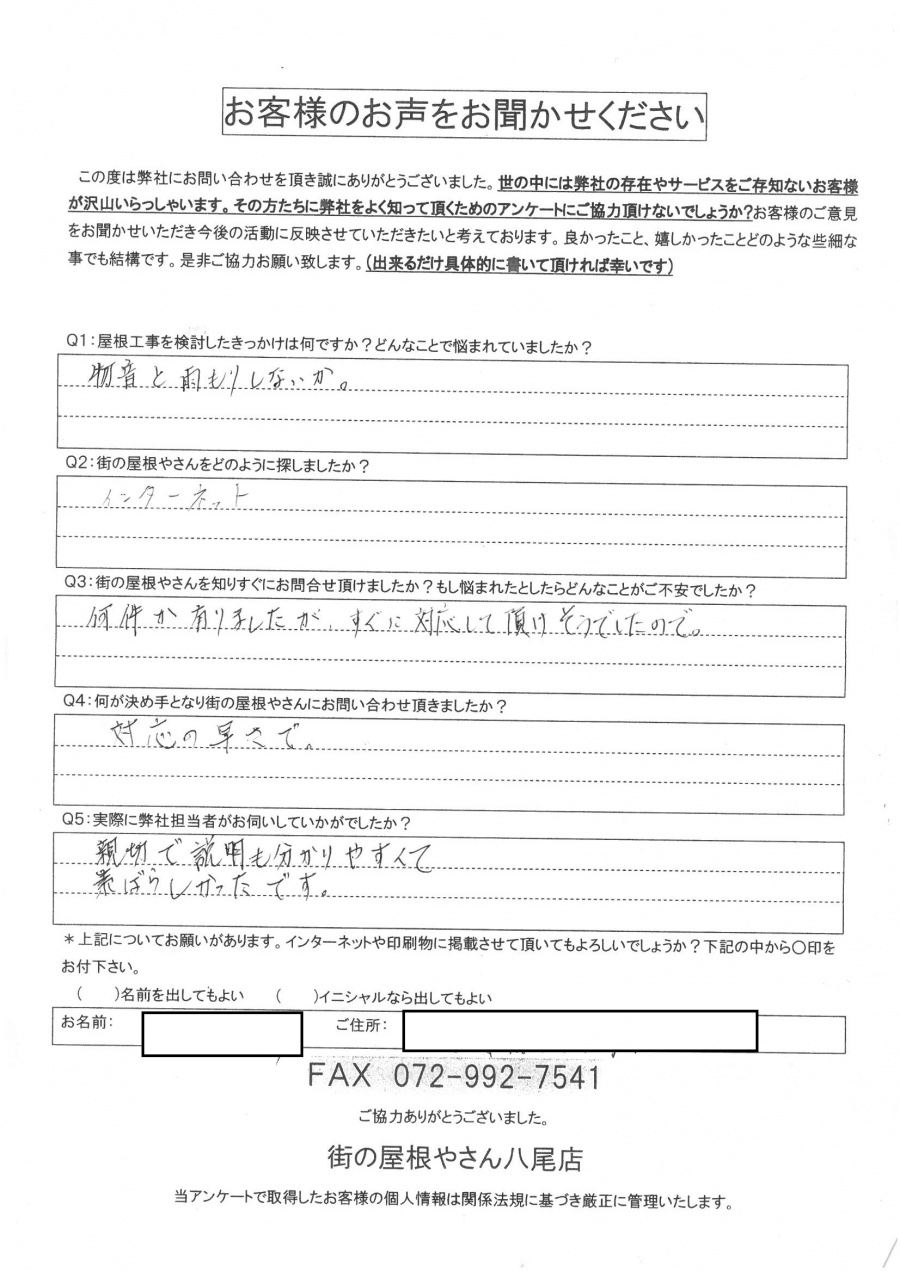 お客様のお声をお聞かせください
この度は弊社にお問い合わせを頂き誠にありがとうございました。世の中には弊社の存在やサービスをご存知ないお客様
が沢山いらっしゃいます。その方たちに弊社をよく知って頂くためのアンケートにご協力頂けないでしょうか?お客様のご意見
をお聞かせいただき今後の活動に反映させていただきたいと考えております。良かったこと、嬉しかったことどのような些細な
事でも結構です。是非ご協力お願い致します。(出来るだけ具体的に書いて頂ければ幸いです)
Q1:屋根工事を検討したきっかけは何ですか?どんなことで悩まれていましたか?
物音と雨もりしないか。
Q2:街の屋根やさんをどのように探しましたか?
インターネット
Q3:街の屋根やさんを知りすぐにお問合せ頂けましたか?もし悩まれたとしたらどんなことがご不安でしたか?
何件か有りましたが、すぐに対応して頂けそうでしたので。
Q4:何が決め手となり街の屋根やさんにお問い合わせ頂きましたか?
対応の早さで。
Q5:実際に弊社担当者がお伺いしていかがでしたか?
親切で説明も分かりやすくて
素ばらしかったです。
*上記についてお願いがあります。インターネットや印刷物に掲載させて頂いてもよろしいでしょうか?下記の中から〇印を
お付下さい。
( )名前を出してもよい ( )イニシャルなら出してもよい
お名前: ご住所:
FAX 072-992-7541
ご協力ありがとうございました。
街の屋根やさん八尾店
当アンケートで取得したお客様の個人情報は関係法規に基づき厳正に管理いたします。